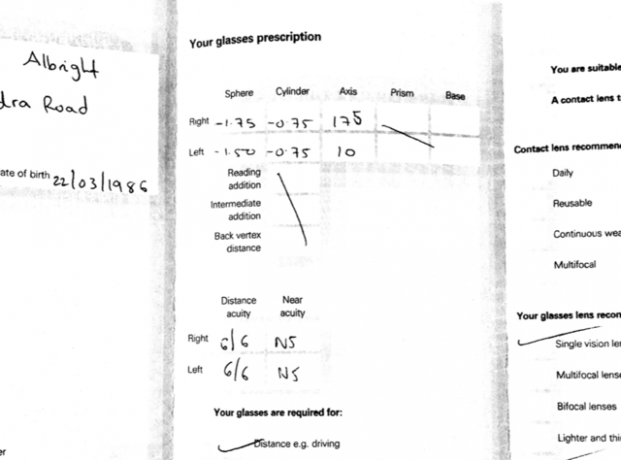 Albright
dra Road
ate of birth 22/03/1986
er
Your glasses prescription
Sphere Cylinder Axis Prism Base
Right -1.75 -0.75 175
Left -1.50 -0.75 10
Reading
addition
Intermediate
addition
Back vertex
distance
Distance
acuity
Near
acuity
Right 6/6 N5
Left 6/6 N5
Your glasses are required for:
Distance e.g. driving
You are suitable
A contact lens t
Contact lens recommen
Daily
Reusable
Continuous wea
Multifocal
Your glasses lens recon
Single vision len
Multifocal lense
Bifocal lenses
Lighter and thi